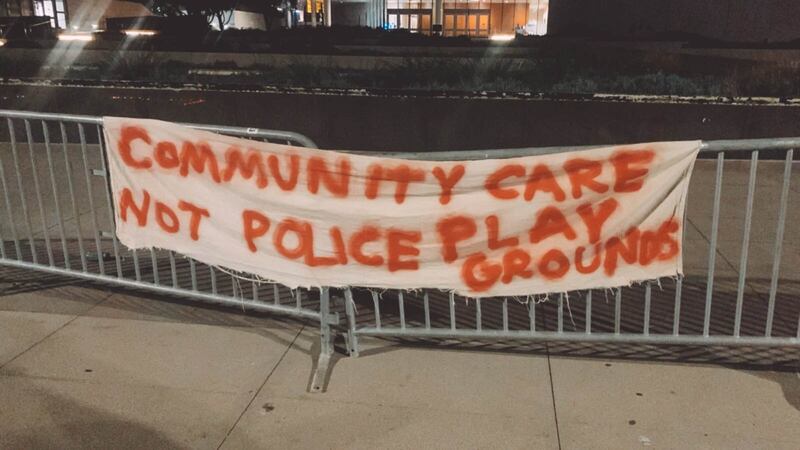 COMMUNITY CARE
NOT POLICE PLAY
GROUNDS